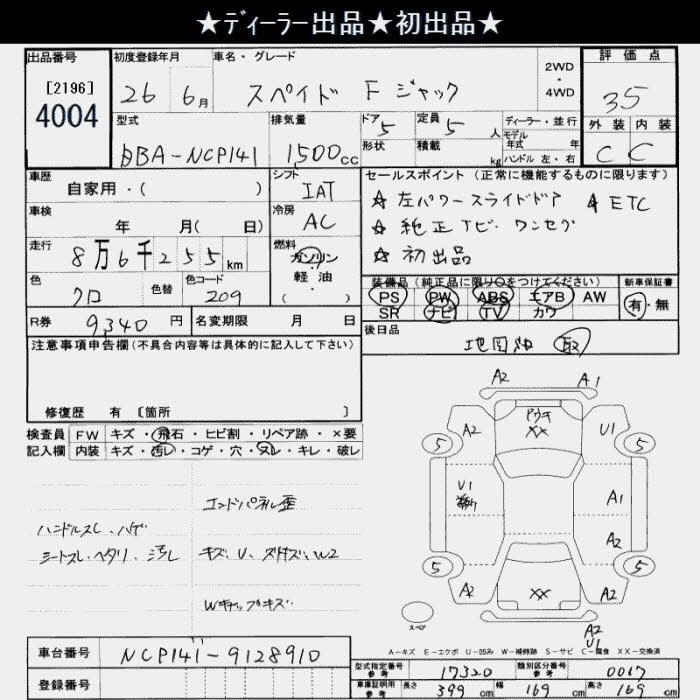 ★ディーラー出品★初出品★
出品番号 初度登録年月 車名・グレード 2WD・4WD 評価点
[2196] 4004 26 6月 スペイド F ジャック 35
型式 排気量 ドア 5 定員 5人 ディーラー・並行 外装 内装
DBA-NCP141 1500cc 形状 積載 kg モデル年式 年 ハンドル 左・右 C C
車歴 シフト セールスポイント (正常に機能するものに限ります)
自家用・( ) IAT ☆ 左パワースライドドア ☆ ETC
車検 冷房 ☆ 純正ナビ ワンセグ
年 月( 日) AC ☆ 初出品
走行 燃料
8万6千255km ガソリン・軽油・( )
装備品 (純正品に限り○をつけてください) 新車保証書
色 色替 色コード PS PW ABS エアB AW 有・無
クロ 209 SR ナビ TV カワ
R券 9,340円 名変期限 月 日 後日品
注意事項申告欄 (不具合内容等は具体的に記入して下さい) 取
修復歴 有 [箇所 ]
検査員 FW キズ・飛石・ヒビ割・リペア跡・×要
記入欄 内装 キズ・汚レ・コゲ・穴・ヌレ・キレ・破レ
エンドパネル歪
ハンドルスレ・ハゲ
シートスレ・ヘタリ・汚レ キズ、U、W2
Wキャップキズ
A2 A1
A2 XX U1
5 5
U1 A1
A2
5 5
A2 XX A2
スペア A2
U1
A-キズ E-エクボ U-凹み W-補修跡 S-サビ C-腐食 XX-交換済
車台番号 NCP141-9128910
型式指定番号 参考 17320 類別区分番号 参考 0017
登録番号
車庫証明用 参考 長さ 399cm 幅 169cm 高さ 169cm